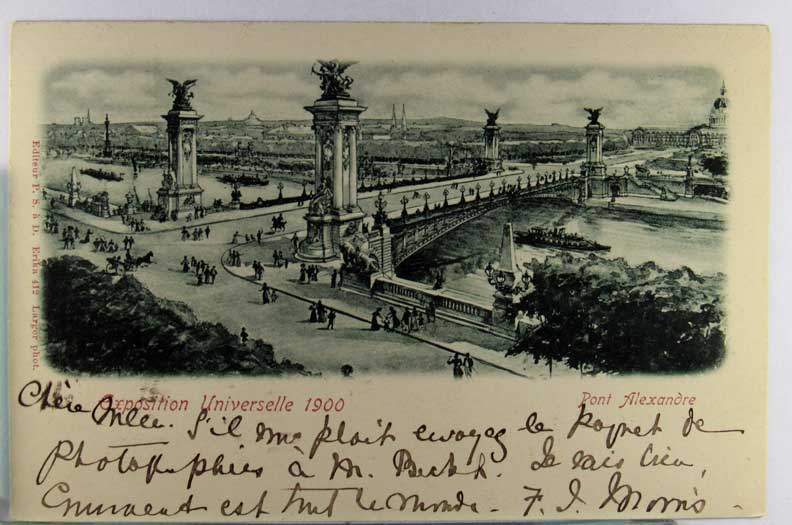 Editeur P. S. à D. Erika 41² Larger phot.
Exposition Universelle 1900
Pont Alexandre
Chère Mlle. S'il me plait evoyez le paquet de
Photographies à M. Je vais bien,
Comment est tout le monde - F. J. Morris -